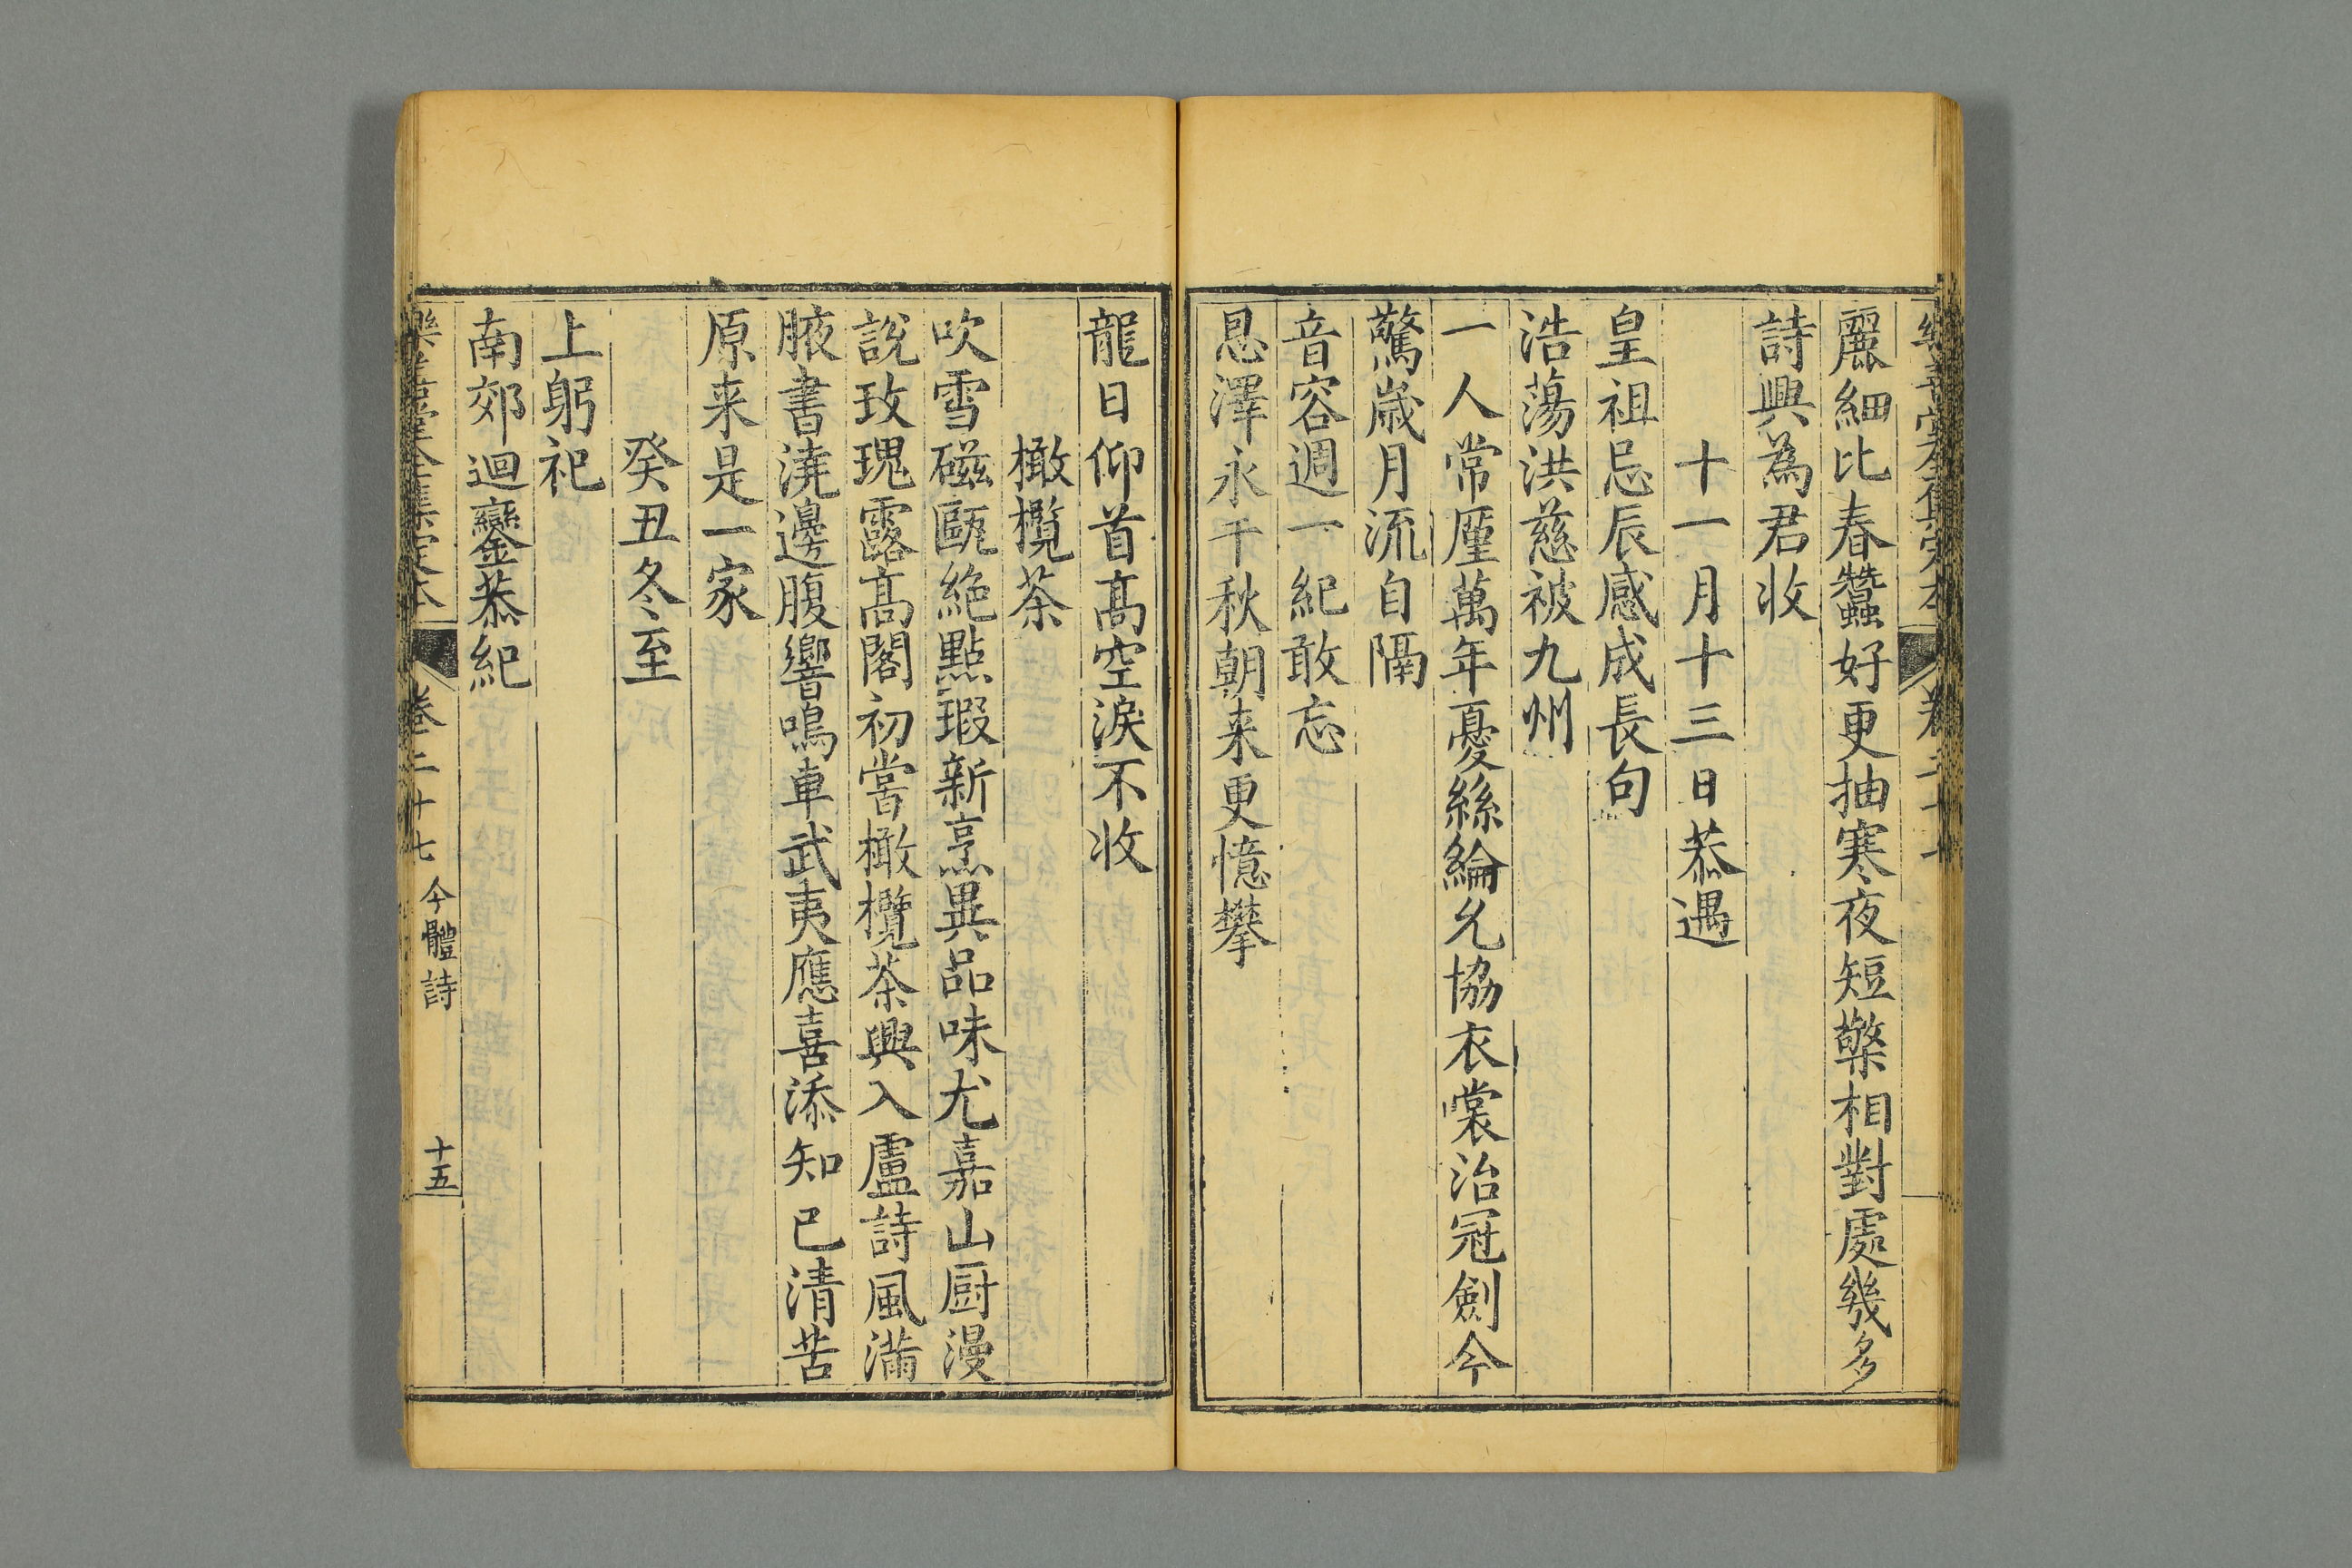 麗細比春蠶好更抽寒夜短檠相對處幾多
詩興為君收
十一月十三日恭遇
皇祖忌辰感成長句
浩蕩洪慈被九州
一人常厪萬年憂絲綸允協衣裳治冠劍今
驚歲月流自隔
音容週一紀敢忘
恩澤永千秋朝来更憶攀
龍日仰首髙空淚不收
橄欖茶
吹雪磁甌絶點瑕新烹異品味尤嘉山厨漫
說玫瑰露髙閣初嘗橄欖茶興入盧詩風滿
腋書澆邊腹響鳴車武夷應喜添知已清苦
原来是一家
癸丑冬至
上躬祀
南郊迴鑾恭紀
樂善堂全集定本 卷二十七 今體詩 十五